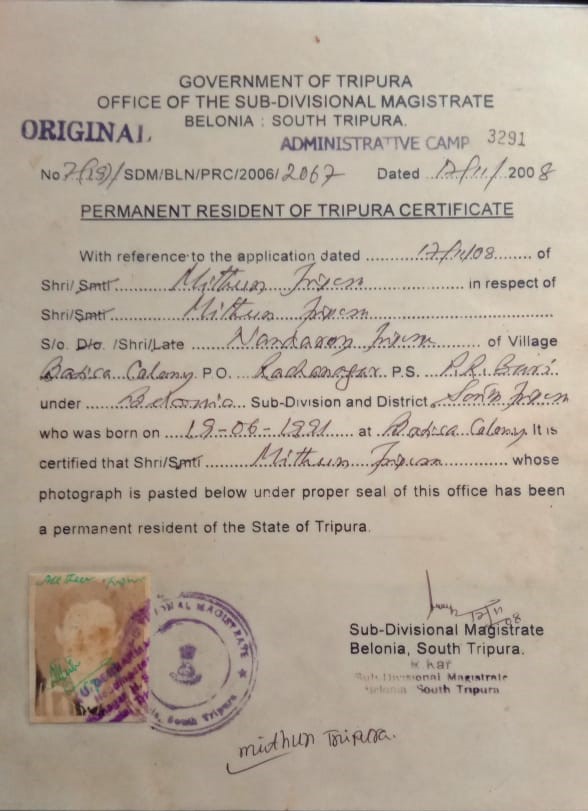 GOVERNMENT OF TRIPURA
OFFICE OF THE SUB-DIVISIONAL MAGISTRATE
BELONIA : SOUTH TRIPURA.
ORIGINAL
ADMINISTRATIVE CAMP 3291
No /SDM/BLN/PRC/2006/2067 Dated 17/11/2008
PERMANENT RESIDENT OF TRIPURA CERTIFICATE
With reference to the application dated 17/11/08 of
Shri/Smti Mithun Tripura in respect of
Shri/Smti Mithun Tripura
S/o. D/o. /Shri/Late Tripura of Village
Colony P.O. Radhanagar P.S. P.R. Bari
under Belonia Sub-Division and District South Tripura
who was born on 19-06-1991 at Colony It is
certified that Shri/Smti Mithun Tripura whose
photograph is pasted below under proper seal of this office has been
a permanent resident of the State of Tripura.
MAGISTRATE
South Tripura
17/11/08
Sub-Divisional Magistrate
Belonia, South Tripura.
Kar
Sub-Divisional Magistrate
Belonia South Tripura
midhun Tripura.